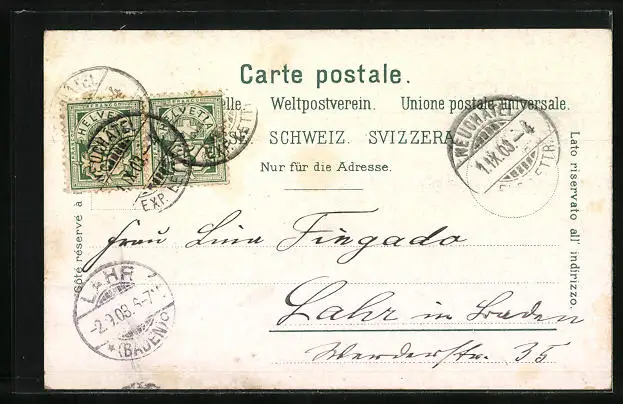 Carte postale.
elle. Weltpostverein. Unione postale universale.
SCHWEIZ. SVIZZERA
Nur für die Adresse.
Côté réservé à
Lato riservato all' indirizzo.
HELVETIA
HELVETIA
NEUCHATEL
EXP. LETTR.
NEUCHATEL
1.IX.03.-4
LETTR.
LAHR
-2.9.03.6-7V.
*(BADEN)
Frau Lina Fingado
Lahr in Baden
Werderstr. 35